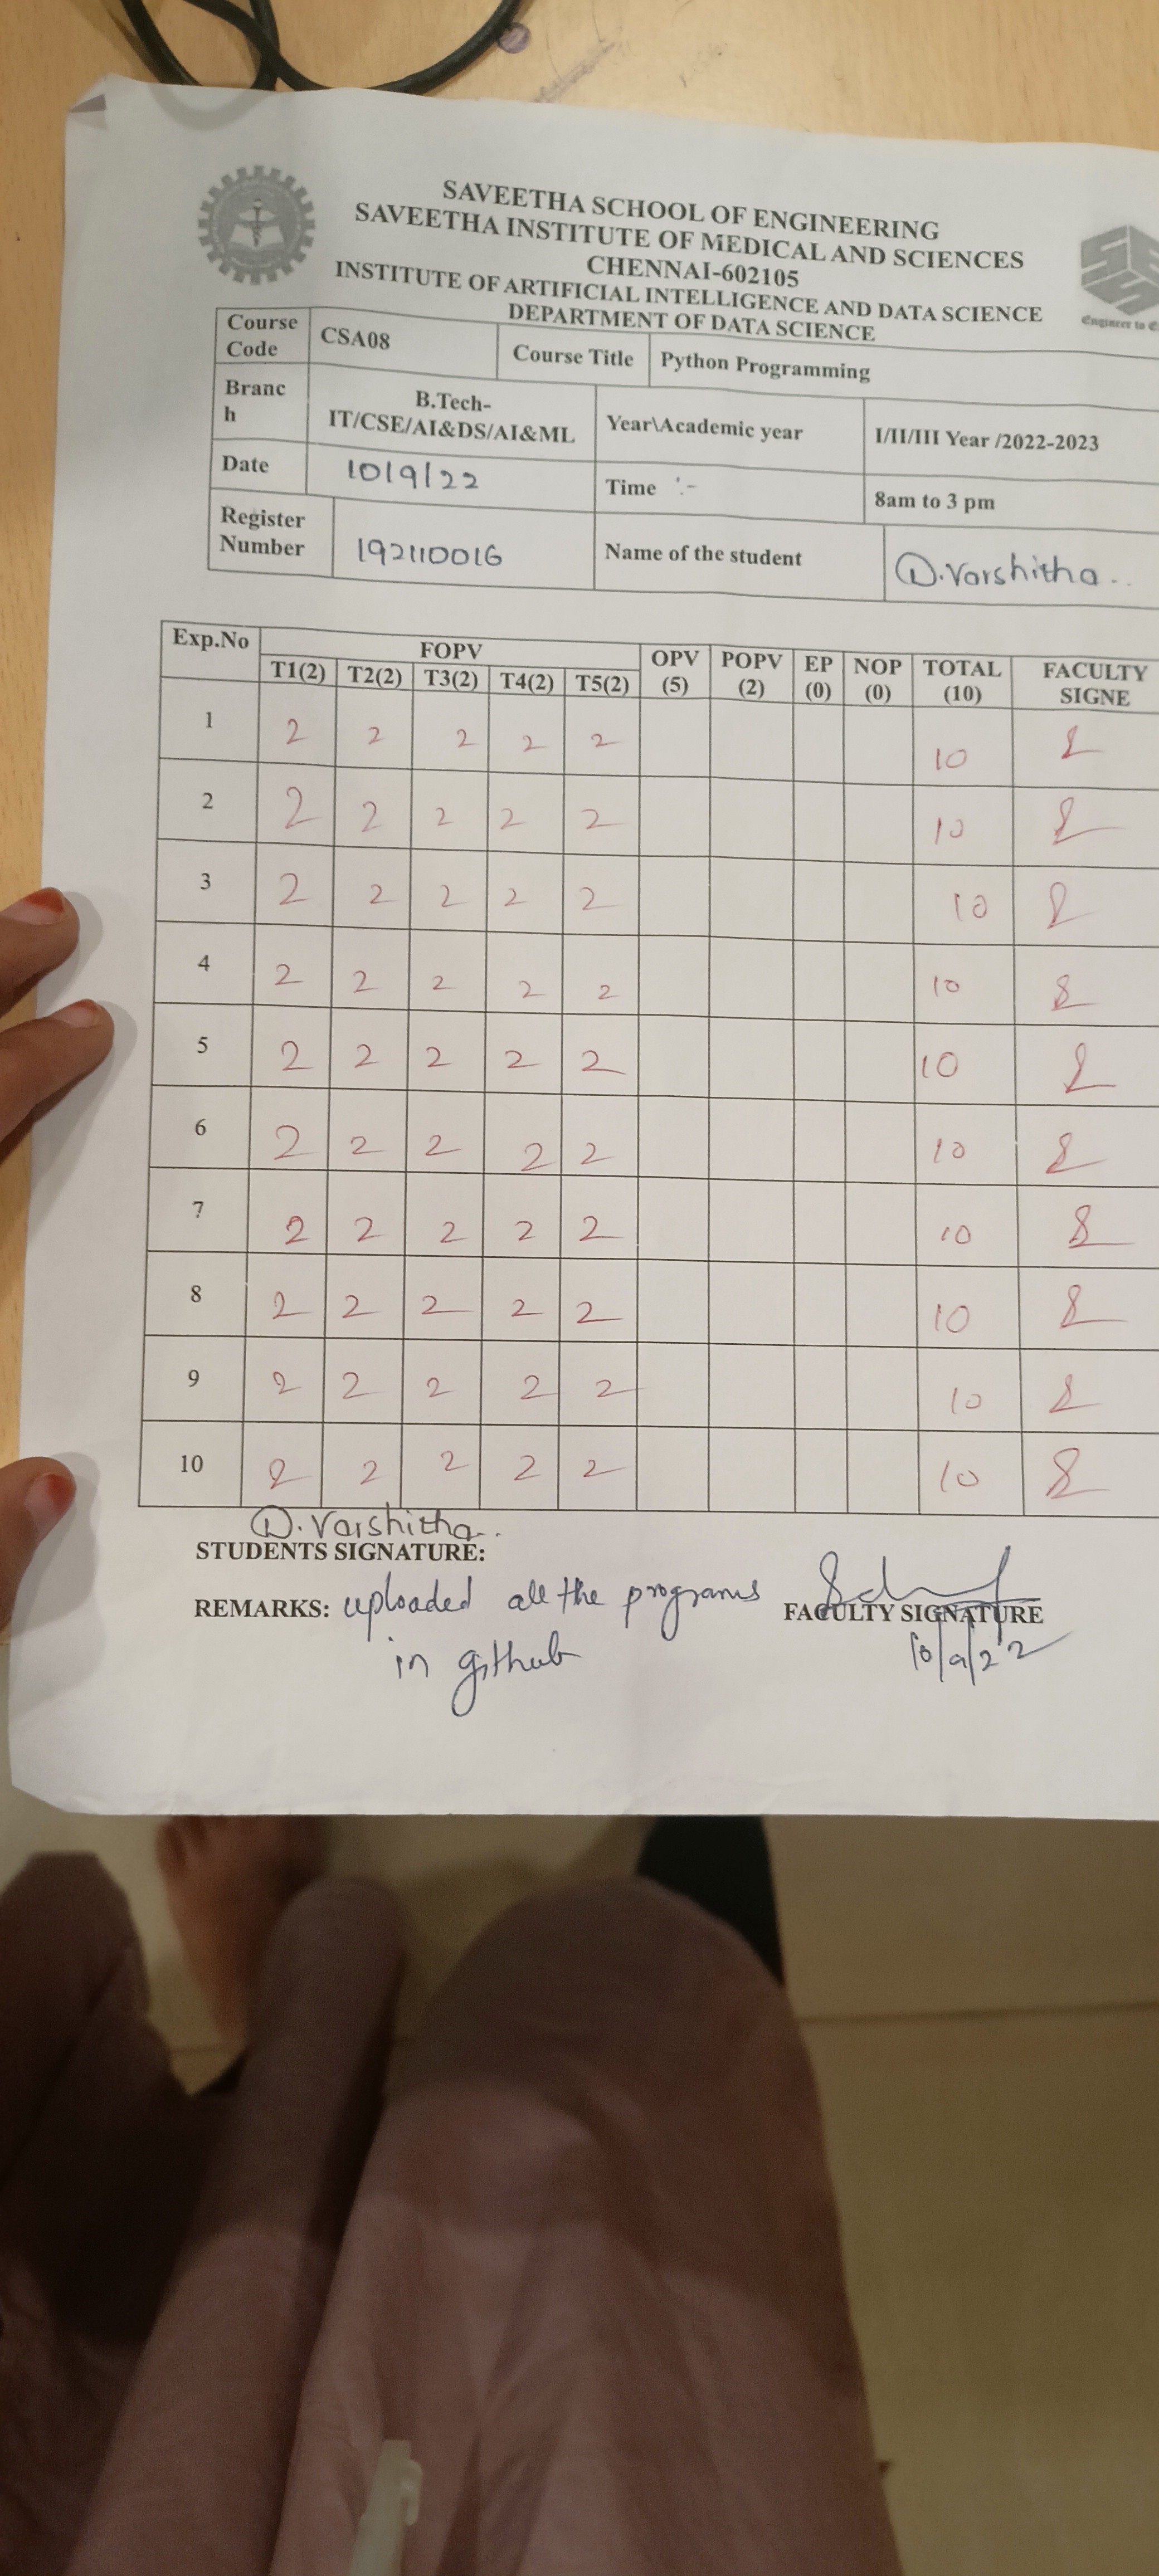 SAVEETHA SCHOOL OF ENGINEERING
SAVEETHA INSTITUTE OF MEDICAL AND SCIENCES
CHENNAI-602105
INSTITUTE OF ARTIFICIAL INTELLIGENCE AND DATA SCIENCE
DEPARTMENT OF DATA SCIENCE
Engineer to
Course Code CSA08 Course Title Python Programming
Branc h B.Tech- IT/CSE/AI&DS/AI&ML Year\Academic year I/II/III Year /2022-2023
Date 10/9/22 Time :- 8am to 3 pm
Register Number 192110016 Name of the student D.Varshitha..
Exp.No FOPV OPV (5) POPV (2) EP (0) NOP (0) TOTAL (10) FACULTY SIGNE
T1(2) T2(2) T3(2) T4(2) T5(2)
1 2 2 2 2 2 10
2 2 2 2 2 2 10
3 2 2 2 2 2 10
4 2 2 2 2 2 10
5 2 2 2 2 2 10
6 2 2 2 2 2 10
7 2 2 2 2 2 10
8 2 2 2 2 2 10
9 2 2 2 2 2 10
10 2 2 2 2 2 10
D.Varshitha..
STUDENTS SIGNATURE:
REMARKS: uploaded all the programs FACULTY SIGNATURE
in github 10/9/22